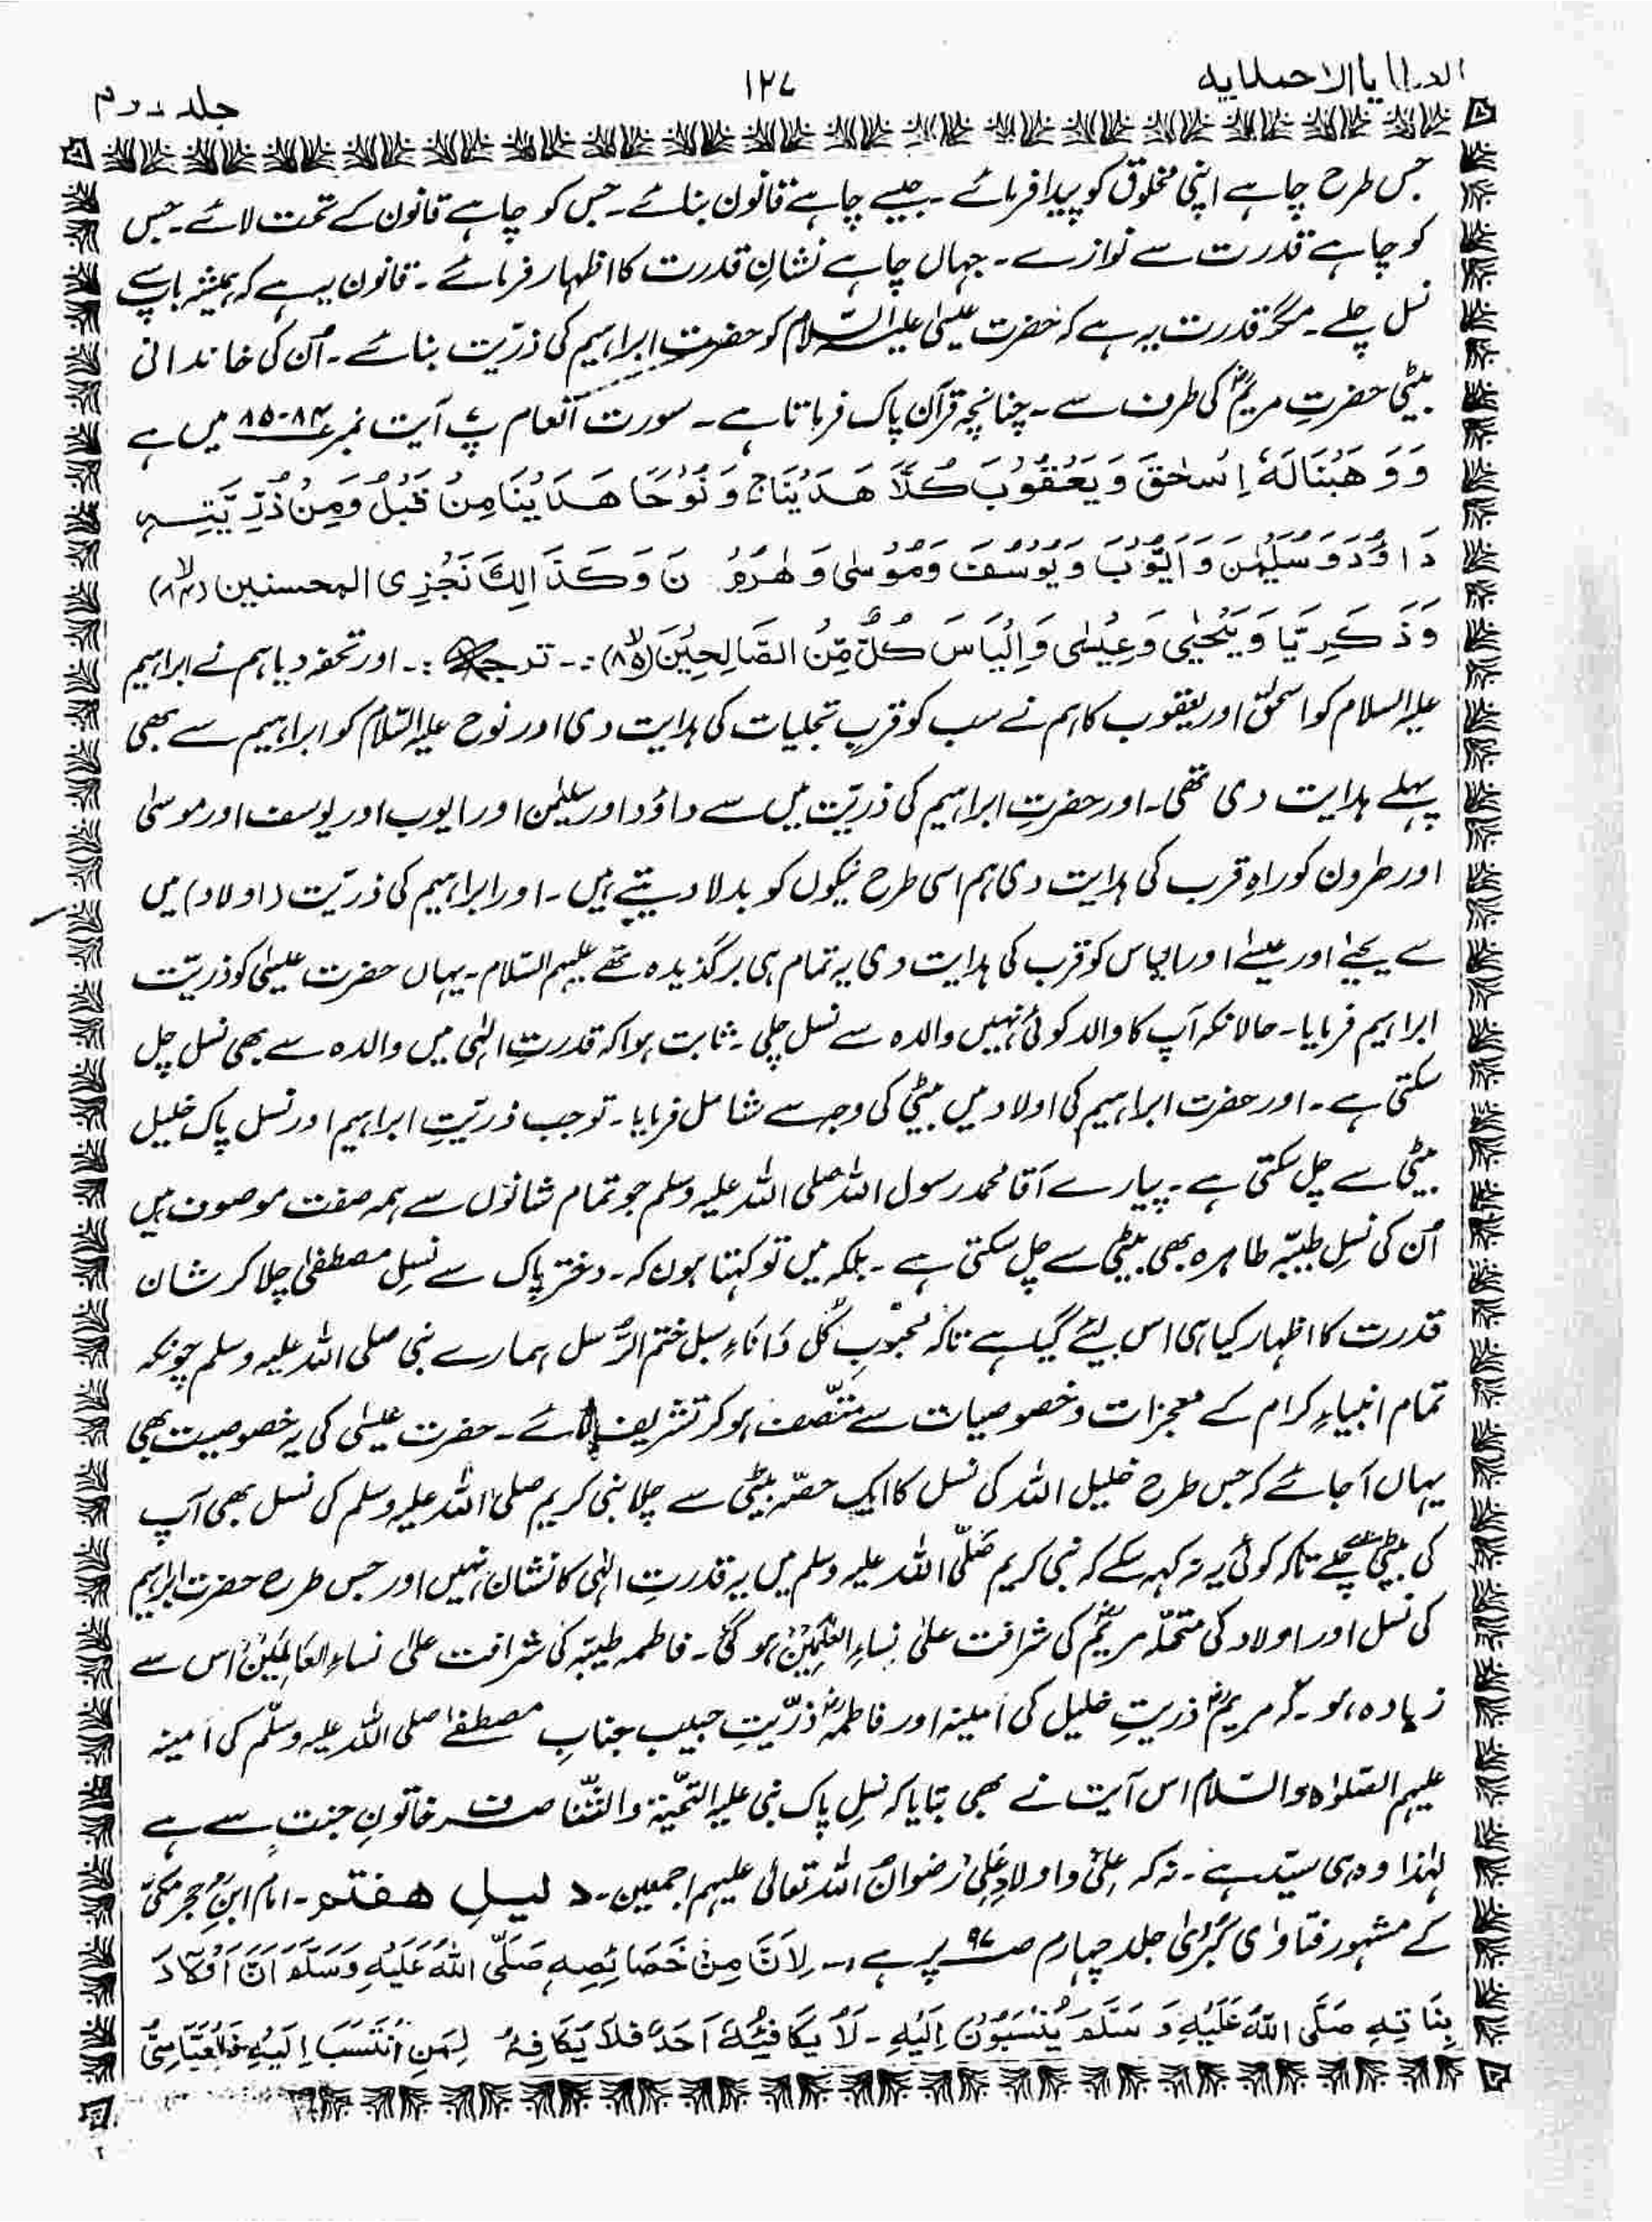 العطایا الاحمدیه
۱۲۷
جلد دوم
جس طرح چاہے اپنی مخلوق کو پیدا فرمائے ۔ جیسے چاہے قانون بنائے ۔ جس کو چاہے قانون کے تحت لائے ۔ جس
کو چاہے قدرت سے نوازے ۔ جہاں چاہے نشانِ قدرت کا اظہار فرمائے ۔ قانون یہ ہے کہ ہمیشہ باپ سے
نسل چلے ۔ مگر قدرت یہ ہے کہ حضرت عیسیٰ علیہ السّلام کو حضرت ابراہیم کی ذرّیت بنائے ۔ اُن کی خاندانی
بیٹی حضرتِ مریمؓ کی طرف سے ۔ چنانچہ قرآن پاک فرماتا ہے ۔ سورت اَنعام پ۷ آیت نمبر ۸۴-۸۵ میں ہے
وَ وَهَبْنَا لَهٗ اِسْحٰقَ وَ يَعْقُوْبَ كُلًّا هَدَيْنَا ج وَ نُوْحًا هَدَيْنَا مِنْ قَبْلُ وَمِنْ ذُرِّيَّتِهٖ
دَاوٗدَ وَ سُلَيْمٰنَ وَ اَيُّوْبَ وَ يُوْسُفَ وَمُوْسٰى وَ هٰرُوْنَ وَ كَذَالِكَ نَجْزِى المحسنين (۸۴)
وَ ذَكَرِيَّا وَ يَحْيٰى وَ عِيْسٰى وَ اِلْيَاسَ كُلٌّ مِّنَ الصَّالِحِيْنَ (۸۵) :۔ ترجمہ :۔ اور تحفہ دیا ہم نے ابراہیم
علیہ السلام کو اسحٰق اور یعقوب کا ہم نے سب کو قربِ تجلیات کی ہدایت دی اور نوح علیہ السّلام کو ابراہیم سے بھی
پہلے ہدایت دی تھی ۔ اور حضرتِ ابراہیم کی ذریّت میں سے داؤد اور سلیمٰن اور ایوب اور یوسف اور موسیٰ
اور ھٰرون کو راہِ قرب کی ہدایت دی ہم اسی طرح نیکوں کو بدلا دیتے ہیں ۔ اور ابراہیم کی ذریّت (اولاد) میں
سے یحیٰے اور عیسےٰ اور الیاس کو قرب کی ہدایت دی یہ تمام ہی برگذیدہ تھے علیہم السّلام ۔ یہاں حضرت عیسیٰ کو ذریّت
ابراہیم فرمایا ۔ حالانکہ آپ کا والد کوئی نہیں والدہ سے نسل چلی ۔ ثابت ہوا کہ قدرتِ الٰہی میں والدہ سے بھی نسل چل
سکتی ہے ۔ اور حضرت ابراہیم کی اولاد میں بیٹی کی وجہ سے شامل فرمایا ۔ تو جب ذریّتِ ابراہیم اور نسل پاک خلیل
بیٹی سے چل سکتی ہے ۔ پیارے آقا محمد رسول اللہ صلی اللہ علیہ وسلم جو تمام شانوں سے ہمہ صفت موصوف ہیں
اُن کی نسلِ طیبّہ طاہرہ بھی بیٹی سے چل سکتی ہے ۔ بلکہ میں تو کہتا ہوں کہ ۔ دخترِ پاک سے نسلِ مصطفیٰ چلا کر شان
قدرت کا اظہار کیا ہی اس لیئے گیا ہے تاکہ محبوبِ کُل دَانَاءِ سبل ختم الرُّسل ہمارے نبی صلی اللہ علیہ وسلم چونکہ
تمام انبیاءِ کرام کے معجزات و خصوصیات سے متّصف ہو کر تشریف لائے ۔ حضرت عیسیٰ کی یہ خصوصیت بھی
یہاں آ جائے کہ جس طرح خلیل اللہ کی نسل کا ایک حصّہ بیٹی سے چلا نبی کریم صلی اللہ علیہ وسلم کی نسل بھی آپ
کی بیٹی سے چلے تاکہ کوئی یہ نہ کہہ سکے کہ نبی کریم صَلّی اللہ علیہ وسلم میں یہ قدرتِ الٰہی کا نشان نہیں اور جس طرح حضرت ابراہیم
کی نسل اور اولاد کی متحملّہ مریمؓ کی شرافت علیٰ نِساءِ العٰلمِیْنَ ہو گئی ۔ فاطمہ طیبّہ کی شرافت علیٰ نساءِ العَالَمِیْنَ اس سے
زیادہ ہو ۔ کہ مریمؓ ذریتِ خلیل کی اَمینہ اور فاطمہؓ ذرّیتِ حبیب جنابِ مصطفےٰ صلی اللہ علیہ وسلّم کی اَمینہ
علیہم الصّلوٰۃ والسّلام اس آیت نے بھی بتایا کہ نسلِ پاک نبی علیہ التحیّۃ والثّنا صرف خاتونِ جنت سے ہے
لہٰذا وہ ہی سیّد ہے ۔ نہ کہ علیؓ و اولادِ عَلِی رضوانُ اللہ تعالیٰ علیہم اجمعین ۔ دلیلِ هفتم ۔ امام ابنِ حجر مکیؒ
کے مشہور فتاوٰی کُبْرٰی جلد چہارم صـ۹۷ پر ہے ، ۔ لِاَنَّ مِنْ خَصَائِصِهٖ صَلَّى اللهُ عَلَيْهِ وَسَلَّمَ اَنَّ اَوْلَادَ
بِنَاتِهٖ صَلَّى اللهُ عَلَيْهِ وَ سَلَّمَ يُنْسَبُوْنَ اِلَيْهِ ۔ لَا يُكَافِئُهٗ اَحَدٌ فَلَا يُكَافِهٗ لِمَنِ انْتَسَبَ اِلَيْهِ فَالْعَبَّاسِىُّ